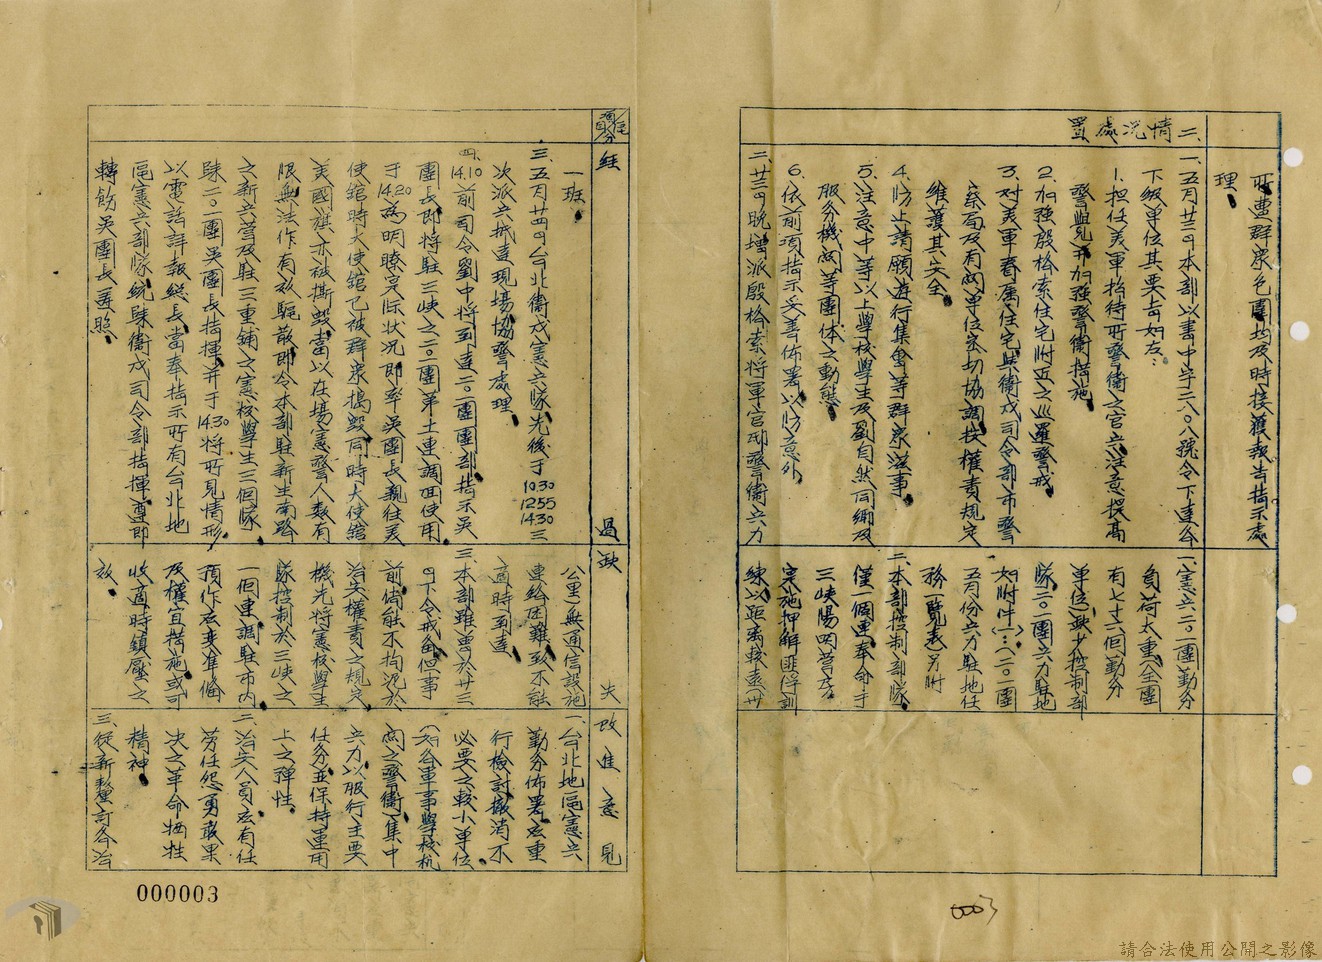 所遭群眾包圍均及時接獲報告指示處
理。
二、情況處置
一、五月廿三日本部以書中字二八〇八號令下達令
下級單位其要旨如左：
1.担任美軍招待所警衛之官兵注意提高
警覺并加強警衛措施
2.加強殷格索住宅附近之巡邏警戒
3.对美軍眷屬住宅與衛戍司令部市警
察局及有関單位密切協調按權責規定
維護其安全
4.防止請願遊行集會等群眾滋事
5.注意中等以上學校學生及劉自然同鄉及
服务機関等團体之動態
6.依前項指示妥善佈署以防意外
二、廿三日晚增派殷格索将軍官邸警衛兵力
一、憲兵二〇一團勤分
負荷太重（全團
有七十三個勤分
單位）缺少控制部
隊二〇一團兵力駐地
如附件（一）：（二〇一團
五月份兵力駐地任
務一覽表）另附
二、本部控制部隊
僅一個連奉命于
三峽陽明營房
实施押解匪俘訓
練以距离較遠（廿
項目 區分
經過
缺失
改進意見
一班。
三、五月廿四日台北衛戍憲兵隊先後于10.30 12.55 14.30三
次派兵抵達現場協警處理
四、14.10前司令劉中将到達二〇一團團部指示吳
團長即将駐三峽之二〇一團第十連調回使用
于14.20為明瞭实际狀况即率吳團長親往美
使館時大使館已被群眾搗毀同時大使館
美國旗亦被撕毀當以在場憲警人数有
限無法作有效驅散即令本部駐新生南路
之新兵營及駐三重鋪之憲校學生三個隊
歸二〇一團吳團長指揮并于14.30将所見情形
以電話詳報總長當奉指示所有台北地
區憲兵部隊統歸衛戍司令部指揮遵即
轉飭吳團長遵照。
公里）無通信設施
連絡困難致不能
適時到達
三、本部雖曾於廿三
日下令戒备但事
前備能不拘泥於
治安權責之規定
機先将憲校學生
隊控制於三峽之
一個連調駐市內
預作应变準備
及權宜措施或可
收適時鎮壓之
效。
一、台北地區憲兵
勤分佈署应重
行檢討撤消不
必要之較小單位
（如各軍事學校机
関之警衛）集中
兵力以服行主要
任分並保持運用
上之彈性。
二、治安人員应有任
劳任怨勇敢果
決之革命犧牲
精神。
三、從新釐訂各治
000003
0003
請合法使用公開之影像